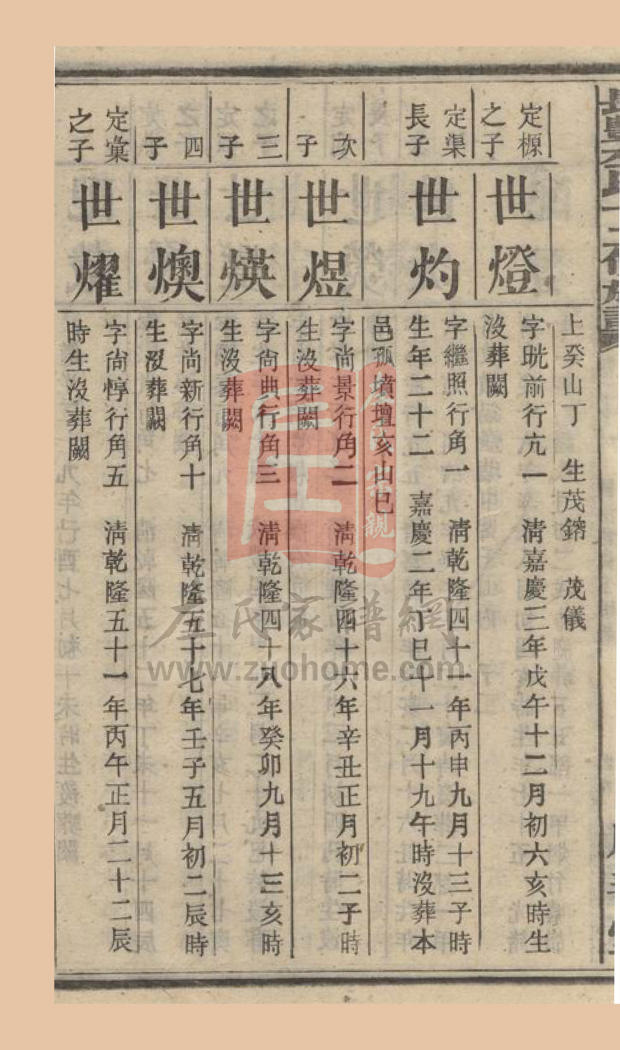 上癸山丁　生茂鎔　茂儀
定㮣之子
世燈
字晄前行亢一　清嘉慶三年戊午十二月初六亥時生
沒葬闕
定渠長子
世灼
字繼照行角一　清乾隆四十一年丙申九月十三子時
生年二十二　嘉慶二年丁巳十一月十九午時沒葬本
邑孤墳壇亥山巳
次子
世煜
字尚景行角二　清乾隆四十六年辛丑正月初二子時
生沒葬闕
三子
世煐
字尚典行角三　清乾隆四十八年癸卯九月十三亥時
生沒葬闕
四子
世燠
字尚新行角十　清乾隆五十七年壬子五月初二辰時
生沒葬闕
定彙之子
世燿
字尚惇行角五　清乾隆五十一年丙午正月二十二辰
時生沒葬闕
左氏家譜網
www.zuohome.com